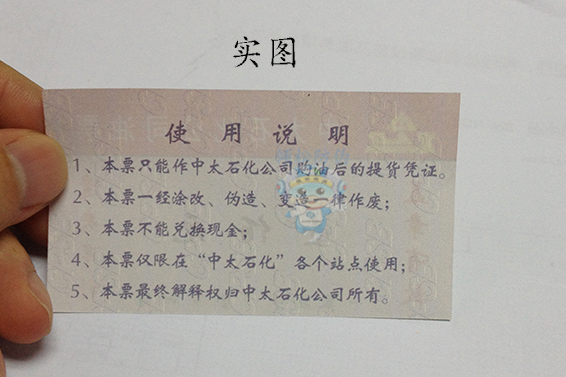 实图
使用说明
1、本票只能作中太石化公司购油后的提货凭证。
2、本票一经涂改、伪造、变造一律作废；
3、本票不能兑换现金；
4、本票仅限在“中太石化”各个站点使用；
5、本票最终解释权归中太石化公司所有。